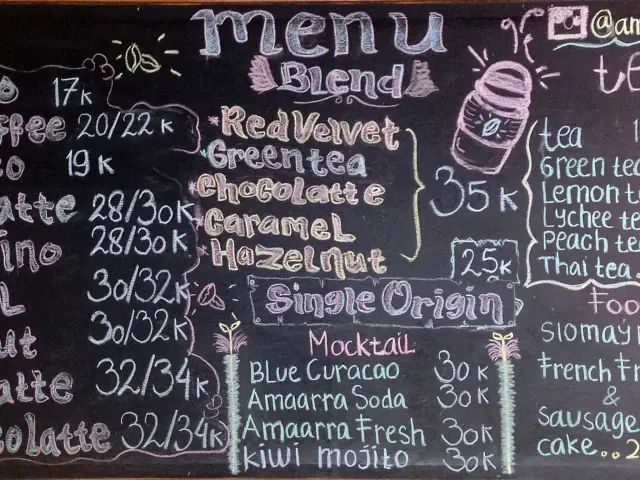 menu
@am
Blend
17K
ffee 20/22 K
19 K
atte 28/30K
ino 28/30K
30/32K
ut 30/32K
atte 32/34K
colatte 32/34K
Red Velvet
Greentea
Chocolatte
Caramel
Hazelnut
35K
25K
Single Origin
Mocktail
Blue Curacao 30K
Amaarra Soda 30K
Amaarra Fresh 30K
kiwi mojito 30K
te
tea 1
Green tea
Lemon t
Lychee te
Peach te
Thai tea
Foo
Siomay
French Fr
&
Sausage
cake..2